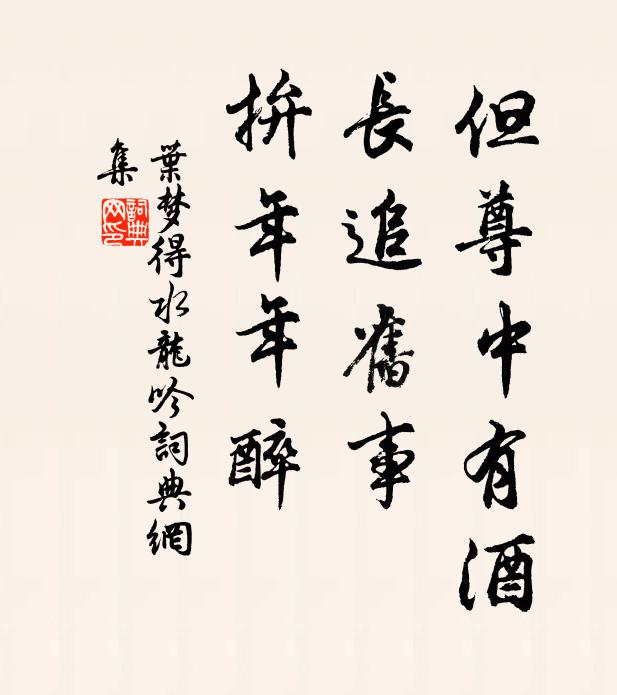 但尊中有酒
長追舊事
拚年年醉
葉梦得水龍吟詞典網
集
詞典網印